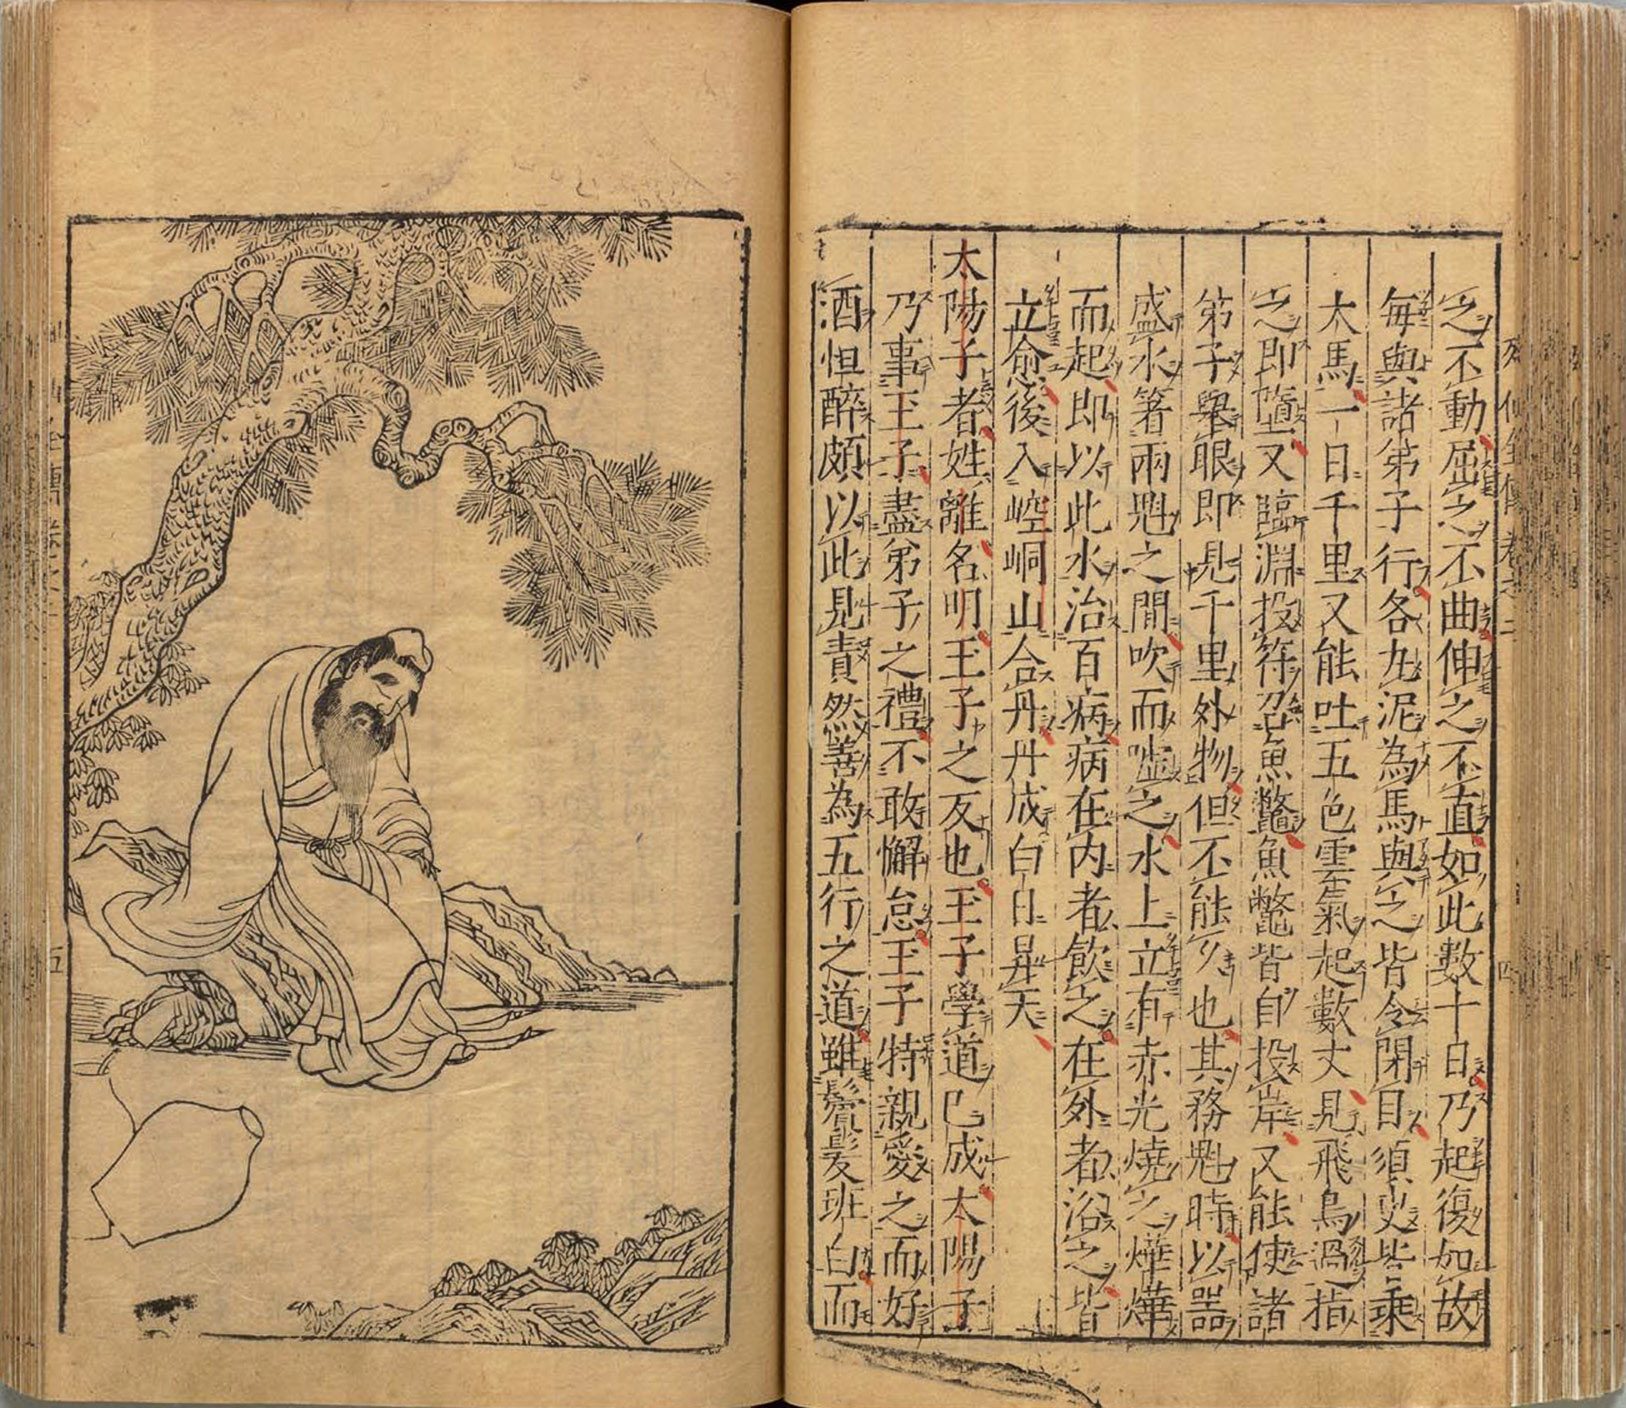 之不動屈之不曲伸之不直如此數十日乃起復如故
每與諸弟子行各丸泥為馬與之皆令閉目須臾皆乘
大馬一日千里又能吐五色雲氣起數丈見飛鳥過指
之即墮又臨淵投符召魚鱉魚鱉皆自投岸又能使諸
弟子舉眼即見千里外物但不能久也其務魁時以器
盛水著兩魁之間吹而噓之水上立有赤光燒之燁燁
而起即以此水治百病病在內者飲之在外者浴之皆
立愈後入崆峒山合丹丹成白日昇天
太陽子者姓離名明玉子之友也玉子學道已成太陽子
乃事玉子盡弟子之禮不敢懈怠玉子特親愛之而好
酒恒醉頗以此見責然善為五行之道雖鬢髮班白而
五